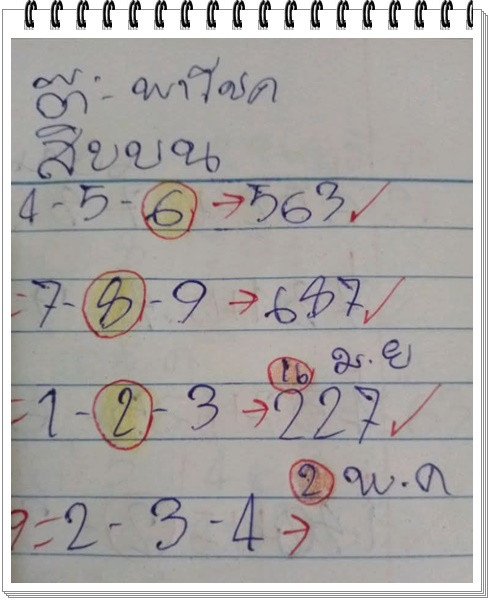 ตี๋:- พารีชค
สิบบน
4-5-6→563✓
=7-8-9→687✓
16 ม.ย
=1-2-3→227✓
2 พ.ค
9=2-3-4→